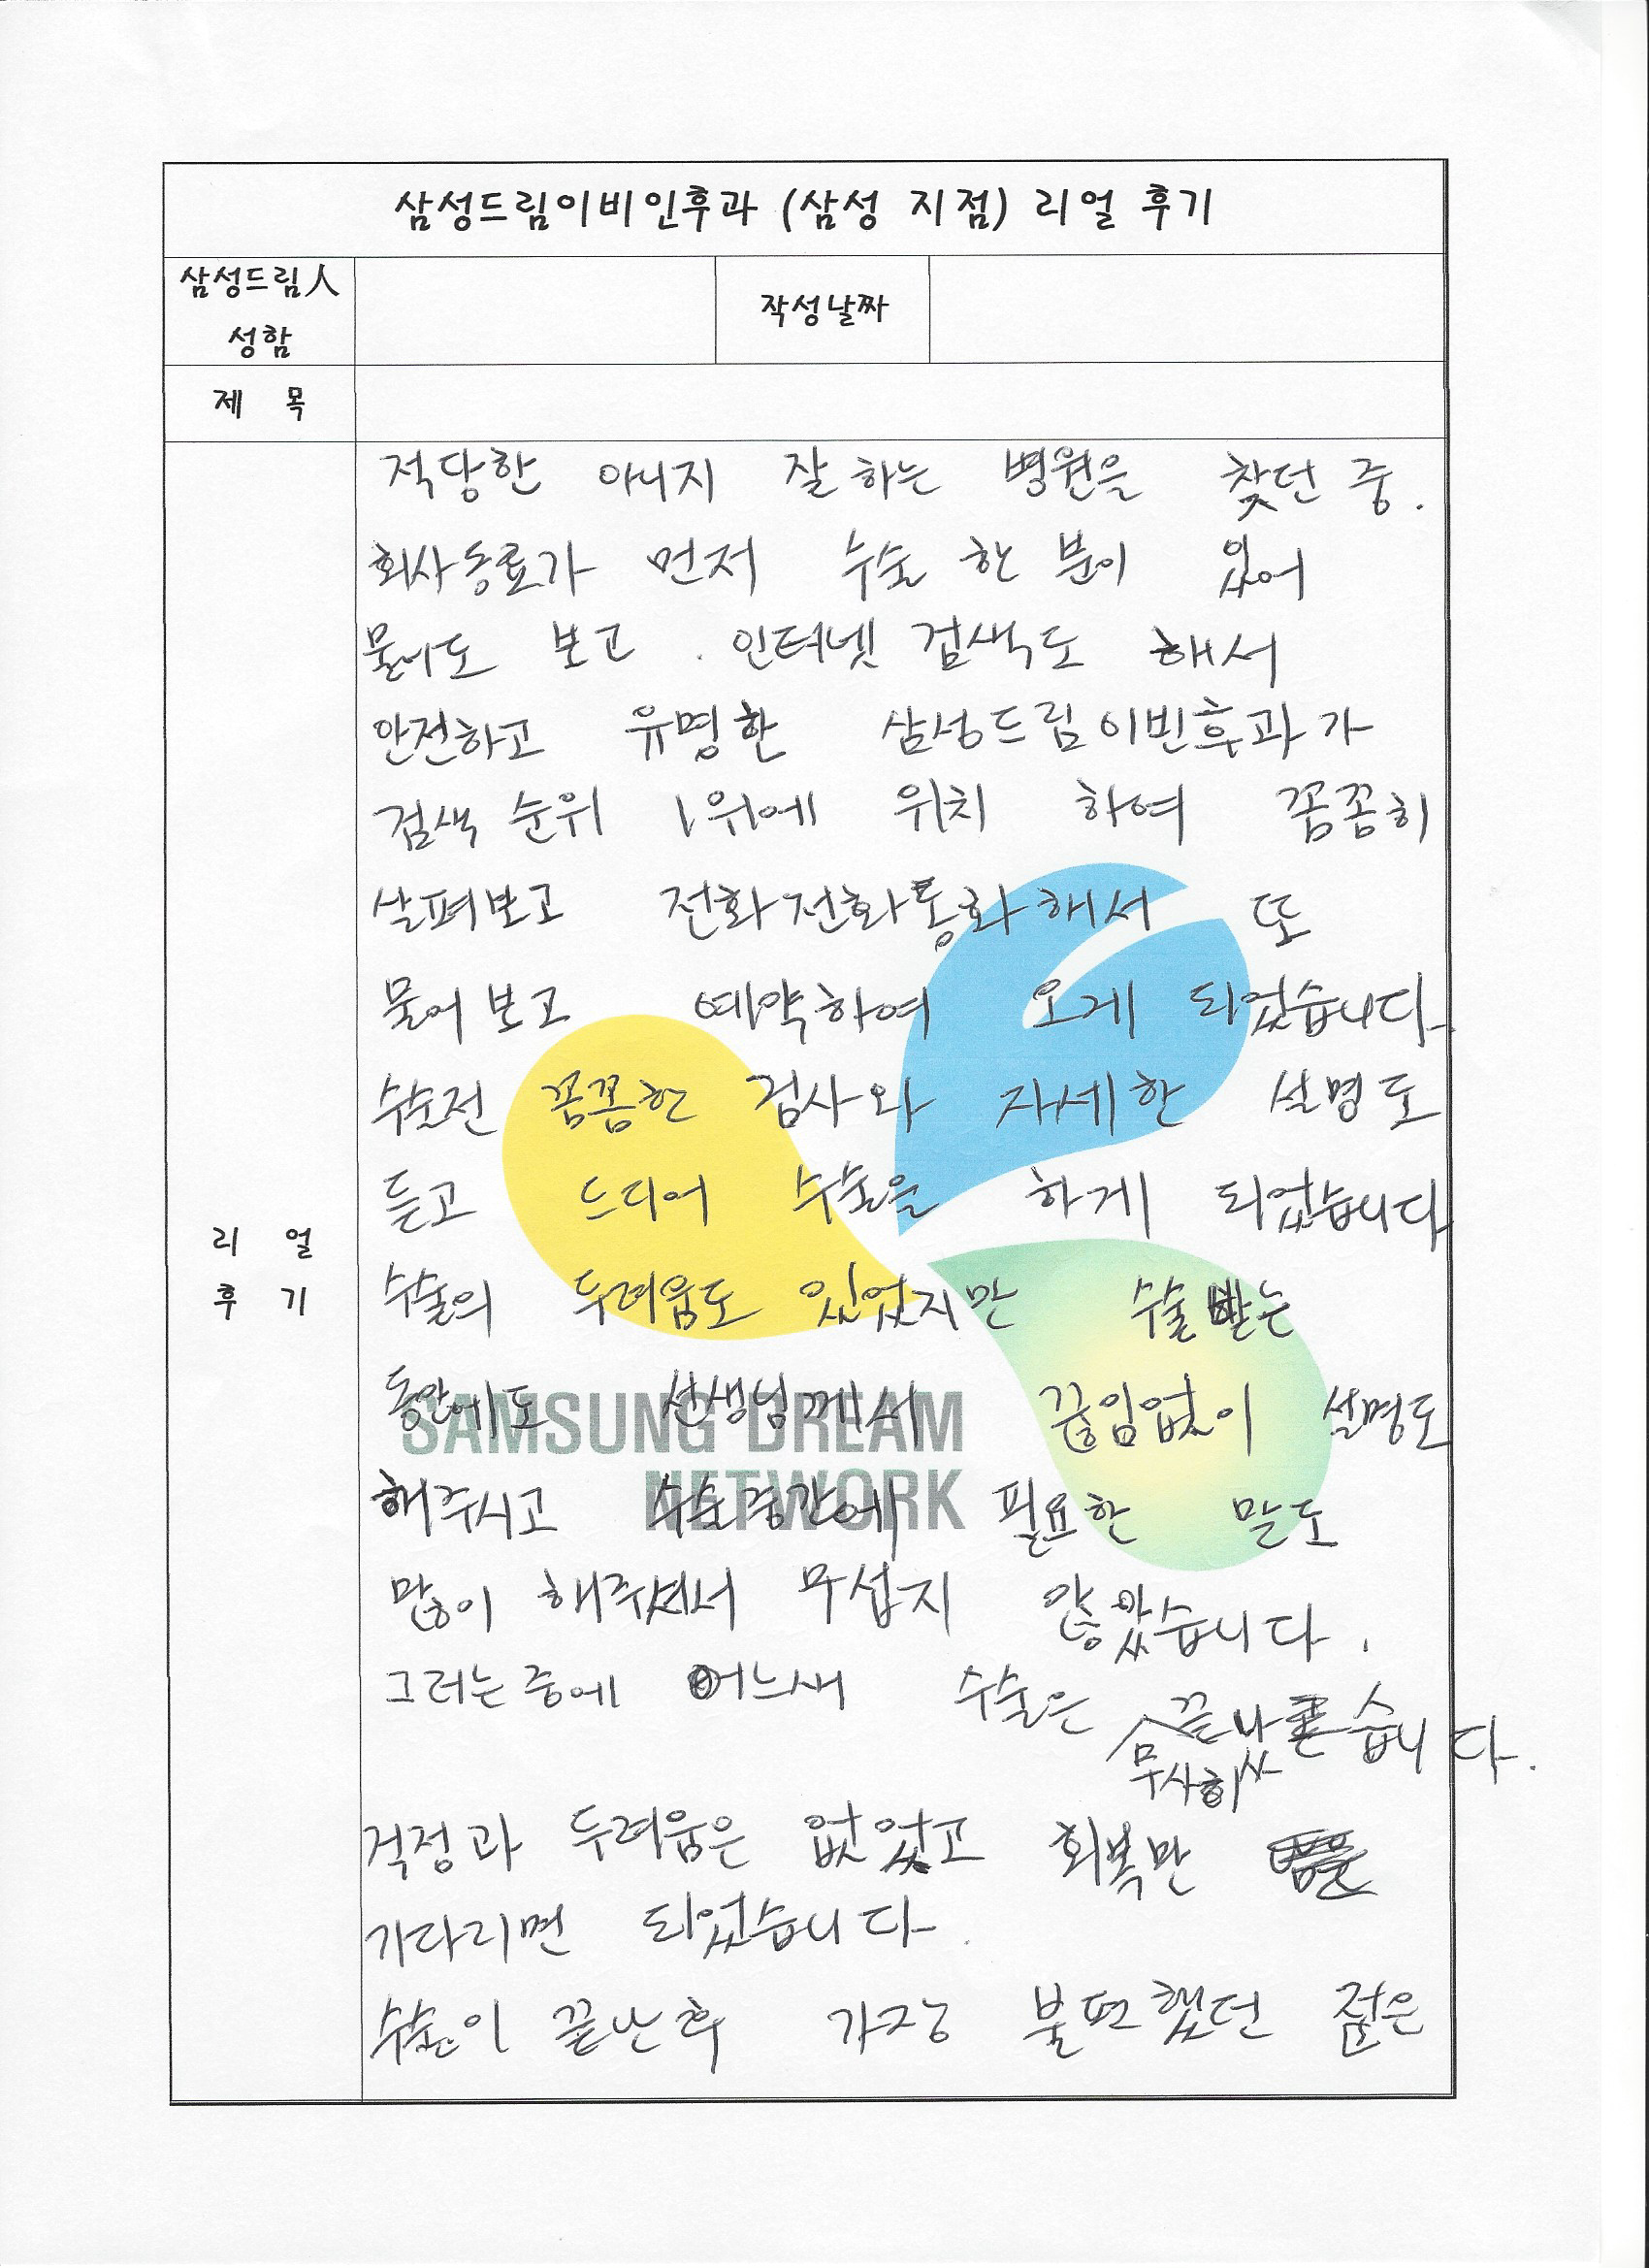 삼성드림이비인후과 (삼성 지점) 리얼 후기
삼성드림人
성함
작성날짜
제 목
적당한 아니지 잘하는 병원을 찾던 중.
회사동료가 먼저 수술 한 분이 있어
물어도 보고. 인터넷 검색도 해서
안전하고 유명한 삼성드림이빈후과가
검색 순위 1위에 위치 하여 꼼꼼히
살펴보고 전화전화통화해서 또
물어보고 예약하여 오게 되었습니다.
수술전 꼼꼼한 검사와 자세한 설명도
듣고 드디어 수술을 하게 되었습니다
리 얼
후 기
수술의 두려움도 있었지만 수술 받는
동안에도 선생님께서 끊임없이 설명도
해주시고 수술중간에 필요한 말도
많이 해주셔서 무섭지 않았습니다.
그러는중에 어느새 수술은 끝났습니다.
무사히
걱정과 두려움은 없었고 회복만
가다리면 되었습니다.
수술이 끝난후 가장 불편했던 점은
SAMSUNG DREAM
NETWORK